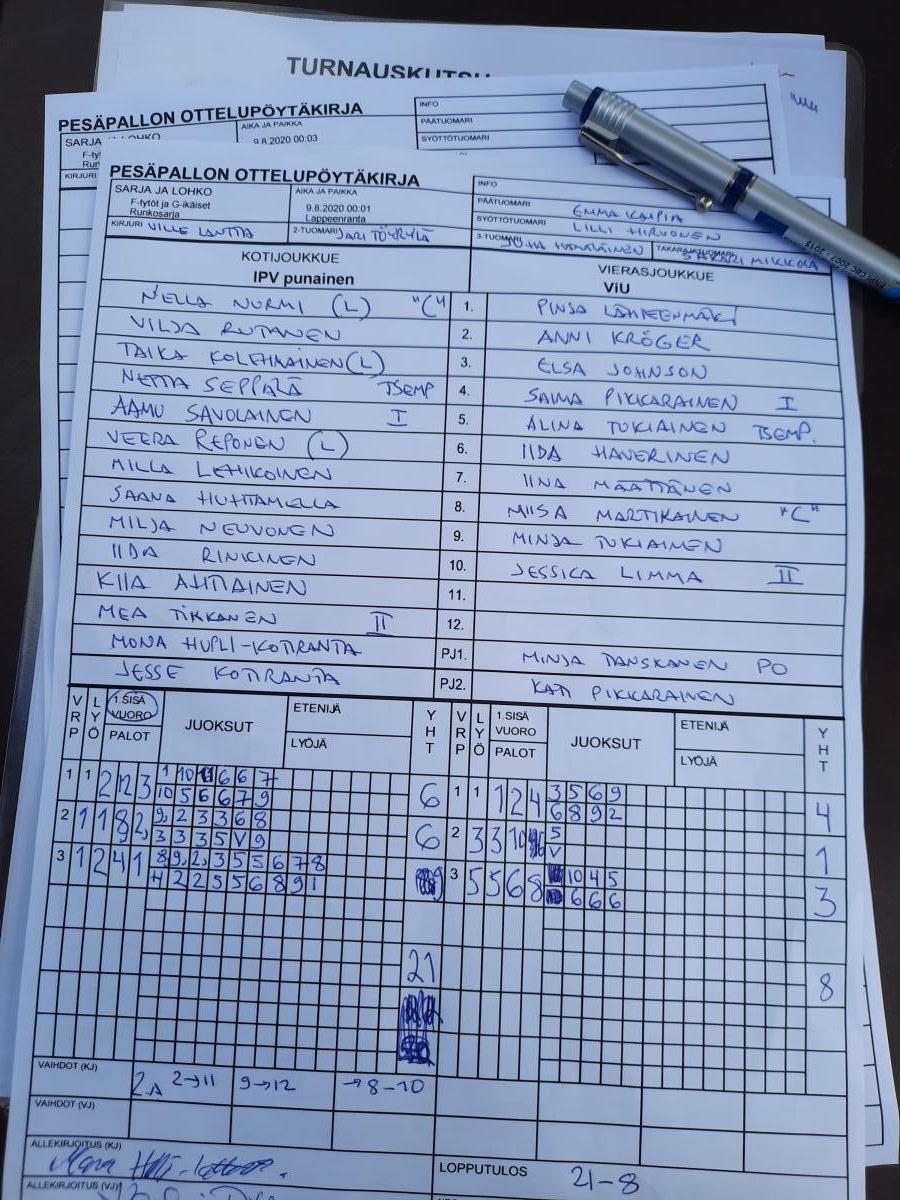 TURNAUSKUTSU
PESÄPALLON OTTELUPÖYTÄKIRJA
INFO
PÄÄTUOMARI
SYÖTTÖTUOMARI
SARJA
AIKA JA PAIKKA
9.8.2020 00:03
KIRJURI
PESÄPALLON OTTELUPÖYTÄKIRJA
INFO
SARJA JA LOHKO
F-tytöt ja G-ikäiset
Runkosarja
AIKA JA PAIKKA
9.8.2020 00:01
Lappeenranta
PÄÄTUOMARI EMMA KAIPIA
SYÖTTÖTUOMARI LILLI HIRVONEN
KIRJURI VILLE LANTTA
2-TUOMARI JARI TÖYRYLÄ
3-TUOMARI JUHA HÄMÄLÄINEN
TAKARAJATUOMARI SAKARI MIKKOLA
KOTIJOUKKUE VIERASJOUKKUE
IPV punainen ViU
NELLA NURMI (L) "C" 1. PINJA LÄHTEENMÄKI
VILJA RUTANEN 2. ANNI KRÖGER
TAIKA KOLEHMAINEN (L) 3. ELSA JOHNSON
NETTA SEPPÄLÄ TSEMP 4. SAIMA PIKKARAINEN I
AAMU SAVOLAINEN I 5. ALINA TUKIAINEN TSEMP.
VEERA REPONEN (L) 6. IIDA HANERINEN
MILLA LEHIKOINEN 7. IINA MÄÄTTÄNEN
SAANA HUHTAMELLA 8. MIISA MARTIKAINEN "C"
MILJA NEUVONEN 9. MINJA TUKIAINEN
IIDA RINKINEN 10. JESSICA LIMMA II
KIIA AHTIAINEN 11.
MEA TIKKANEN II 12.
MONA HUPLI-KOTIRANTA PJ1. MINJA TANSKANEN PO
JESSE KOTIRANTA PJ2. KATI PIKKARAINEN
VRP LYÖ 1.SISÄ VUORO PALOT JUOKSUT ETENIJÄ LYÖJÄ YHT VRP LYÖ 1.SISÄ VUORO PALOT JUOKSUT ETENIJÄ LYÖJÄ YHT
1 1 2 12 3 1 10 11 6 6 7 6 1 1 1 2 4 3 5 6 9 4
10 5 6 6 7 9 6 8 9 2
2 1 1 8 2 9 2 3 3 6 8 6 2 3 3 10 5 1
3 3 3 5 V 9 V
3 1 2 4 1 8 9 2 3 5 5 6 7 8 9 3 5 5 6 8 10 4 5 3
H 2 2 5 5 6 8 9 1 6 6 6
21 8
VAIHDOT (KJ) 2.A 2→11 9→12 →8-10
VAIHDOT (VJ)
ALLEKIRJOITUS (KJ)
LOPPUTULOS 21-8
ALLEKIRJOITUS (VJ)